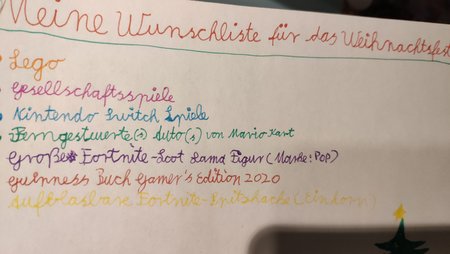 Meine Wunschliste für das Weihnachtsfest
• Lego
• Gesellschaftsspiele
• Nintendo Switch Spiele
• Ferngesteuerte(s) Auto(s) von Mario Kart
Große Fortnite-Loot Lama Figur (Marke: POP)
Guinness Buch Gamer's Edition 2020
Aufblasbare Fortnite-Spitzhacke (Einhorn)